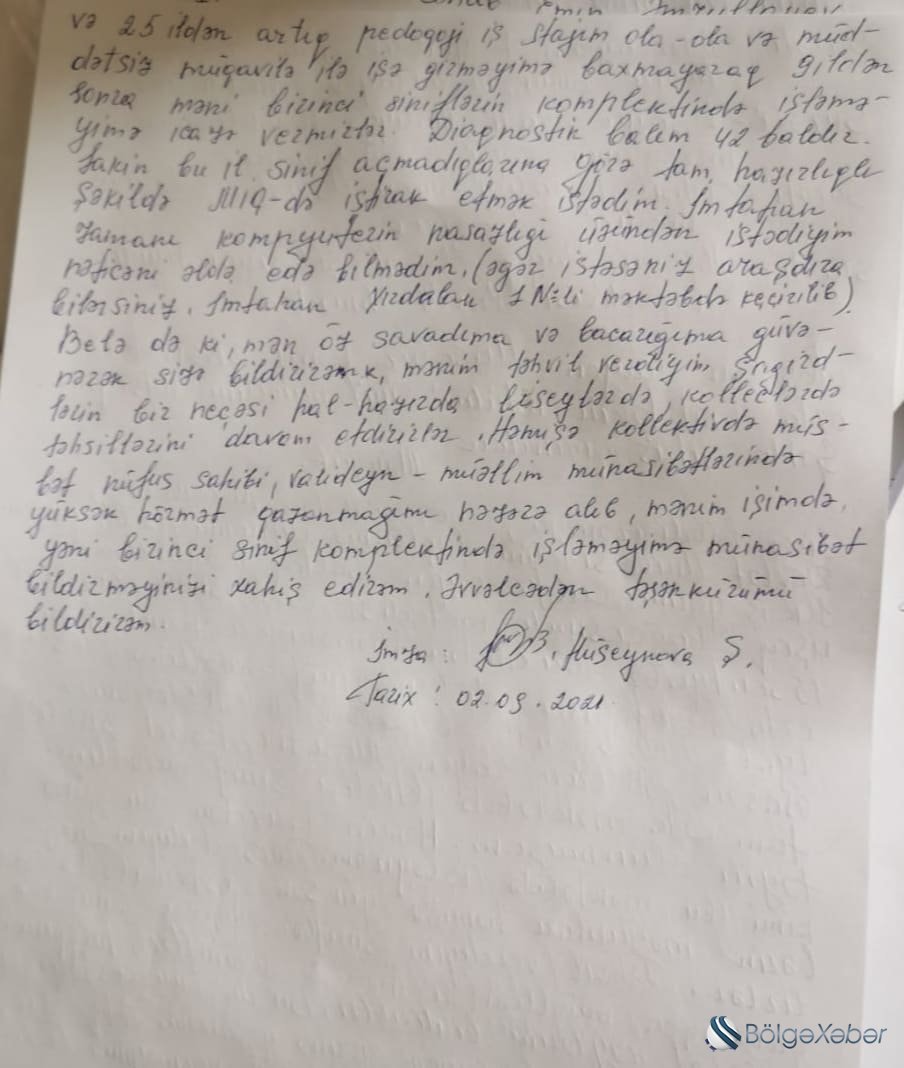 Emin
və 25 ildən artıq pedoqoji iş stajım ola-ola və müd-
dətsiz müqavilə ilə işə girməyimə baxmayaraq 9 ildən
sonra məni birinci siniflərin komplektində işləmə-
yimə icazə vermirlər. Diaqnostik balım 42 baldır.
Lakin bu il sinif açmadıqlarına görə tam, hazırlıqlı
şəkildə MİQ-də iştirak etmək istədim. İmtahan
zamanı kompyuterin nasazlığı üzündən istədiyim
nəticəni əldə edə bilmədim, (əgər istəsəniz araşdıra
bilərsiniz. İmtahan Xırdalan 1 №li məktəbdə keçirilib)
Belə də ki, mən öz savadıma və bacarığıma güvə-
nərək sizə bildirirəmk, mənim təhvil verdiyim şagird-
lərin bir neçəsi hal-hazırda liseylərdə, kolleclərdə
təhsillərini davam etdirirlər. Həmişə kollektivdə müs-
bət nüfus sahibi, valideyn - müəllim münasibətlərində
yüksək hörmət qazanmağımı nəzərə alıb, mənim işimdə,
yəni birinci sinif komplektində işləməyimə münasibət
bildirməyinizi xahiş edirəm. Əvvəlcədən təşəkkürümü
bildirirəm.
İmza: Hüseynova Ş.
Tarix: 02.09.2021
BölgəXəbər